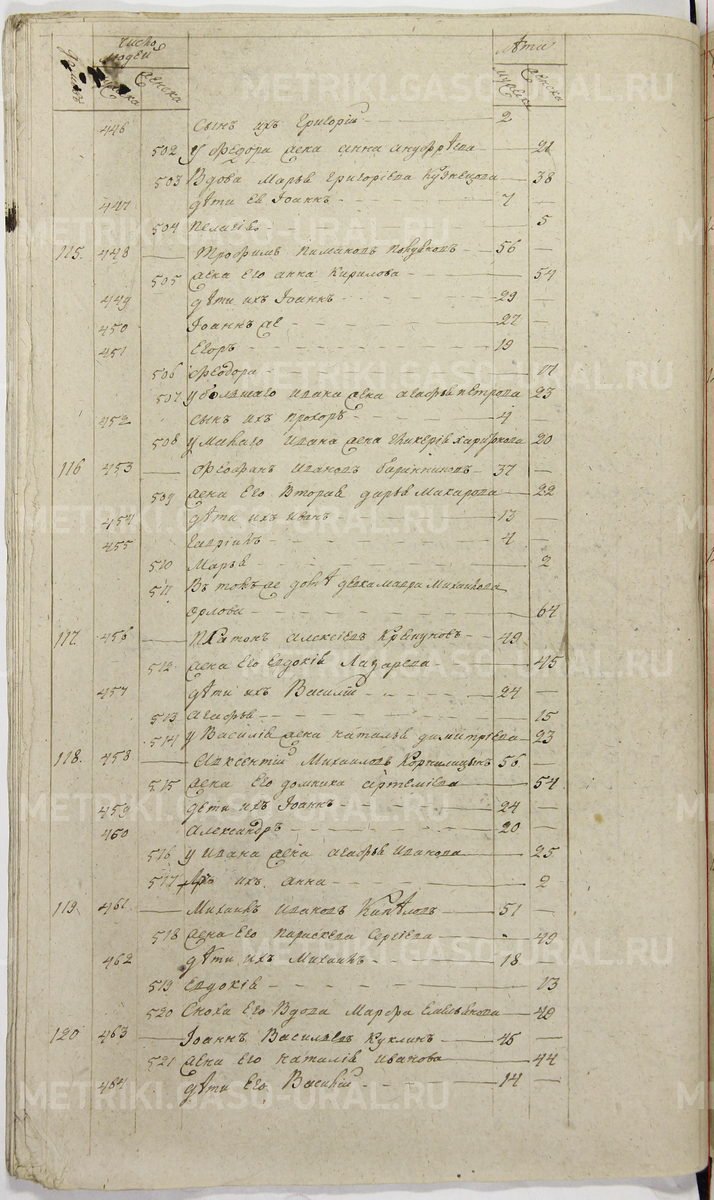 Число людей Лѣта
Мужска Женска Мужска Женска
446 Сынъ ихъ Григорій 2
502 У Ѳедора жена Анна Ануфрѣева 21
503 Вдова Марья Григоріева Кузнецова 38
447 дѣти ея Іоаннъ 7 —
504 Пелагія 5
115. 448 Трофимъ Пимановъ 56 —
505 жена его Анна Кирилова 54
449 дѣти ихъ Іоаннъ 29
450 Іоаннъ же 27 —
451 Егоръ 19 —
506 Ѳеодора 17
507 у большаго Ивана жена Агафья Петрова 23
452 сынъ ихъ Прохоръ 4 —
508 у малаго Ивана жена Гликерія 20
116 453 Ѳеофанъ Ивановъ 37 —
509 жена его вторая Дарья Макарова 22
454 дѣти ихъ Иванъ 13
455 Гавріилъ 4 —
510 Марья 2
511 Въ томъ же домѣ дѣвка Мавра Михайлова
Орлова 64
117. 456 Платонъ Алексѣевъ 49 —
512 жена его Евдокія Лазарева 45
457 дѣти ихъ Василій 24 —
513 Агафья 15
514 у Василія жена Наталья Димитріева 23
118. 458 Авксентій Михайловъ Корнилицынъ 56 —
515 жена его Домника Артемієва 54
459 дѣти ихъ Іоаннъ 24 —
460 Александръ 20 —
516 у Ивана жена Агафья Иванова 25
517 ихъ Анна 2
119. 461 Михаилъ Ивановъ 51 —
518 жена его Парискева Сергіева 49
462 дѣти ихъ Михаилъ 18
519 Евдокія 13
520 Сноха его вдова Марфа Емельянова 49
120 463 Іоаннъ Васильевъ Куклинъ 45 —
521 жена его Наталія Иванова 44
464 дѣти его Василій 14 —
METRIKI.GASO-URAL.RU